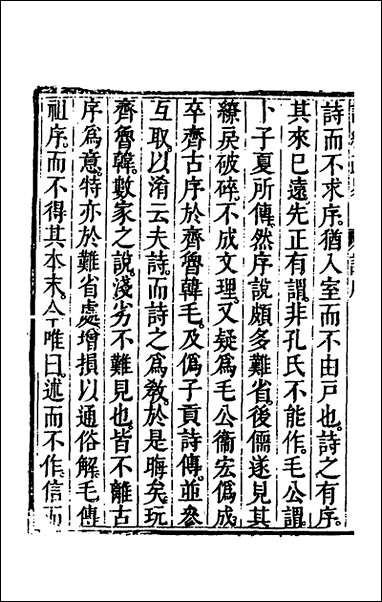 詩而不求序。猶入室而不由戶也。詩之有序。
其來已遠。先正有謂。非孔氏不能作。毛公謂。
卜子夏所傳。然序說頗多難省。後儒遂見其
繚戾破碎。不成文理。又疑為毛公衞宏偽成。
卒齊古序於齊魯韓毛。及偽子貢詩傳。並參
互取。以淆云夫詩。而詩之為教。於是晦矣。玩
齊魯韓。數家之說。淺劣不難見也。皆不離古
序為意。特亦於難省處。增損以通俗解。毛傳
祖序。而不得其本末。今唯曰。述而不作。信而